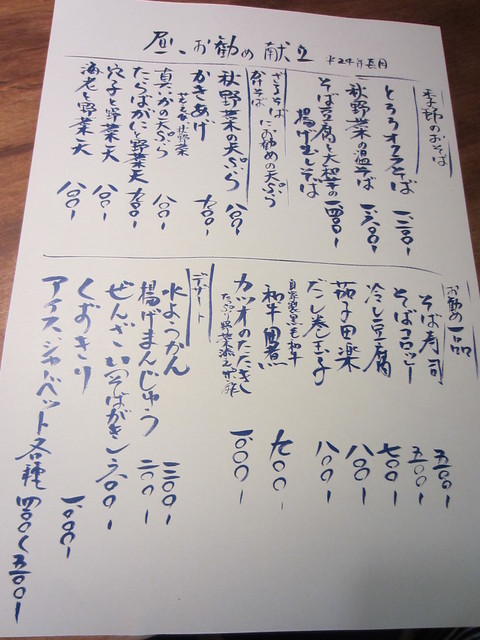 昼、お勧め献立
季節のおそば
とろろオクラそば 一、二〇〇-
秋野菜の温そば 一、六〇〇-
そば豆腐と大和芋の
揚げ出しそば 一、四〇〇-
ざるそば
かけそば
にお勧めの天ぷら
秋野菜の天ぷら 八〇〇-
かきあげ 九〇〇-
真だかの天ぷら 八〇〇-
たらばがにと野菜天 一、五〇〇-
穴子と野菜天 八〇〇-
海老と野菜天 八〇〇-
お勧め一品
そば寿司 五〇〇-
そばコロッケ 五〇〇-
冷し豆腐 七〇〇-
茄子田楽 八〇〇-
だし巻玉子 八〇〇-
自家製黒毛和牛
和牛角煮 九〇〇-
カツオのたたき
たっぷり野菜添え 一、〇〇〇-
デザート
水ようかん 三〇〇-
揚げまんじゅう 二〇〇-
ぜんざい(そばがき) 六〇〇-
くずきり 一、〇〇〇-
アイス、シャーベット各種 四〇〇〜五〇〇-